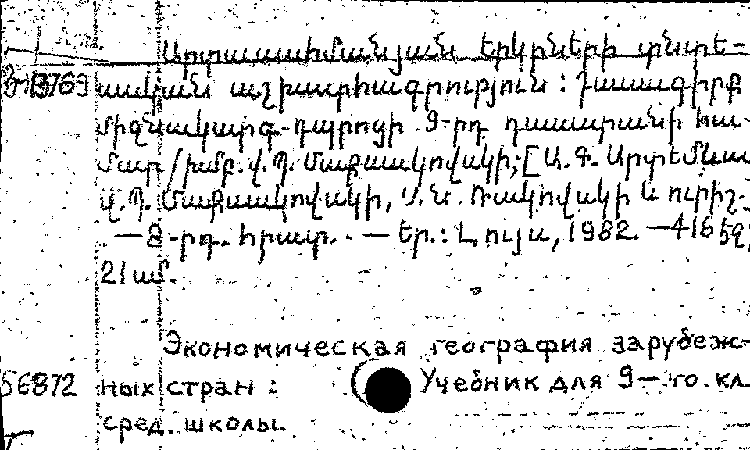 Արտասահմանյան երկրների տնտե-
սական աշխարհագրություն : Դասագիրք
միջնակարգ դպրոցի 9-րդ դասարանի հա-
մար / խմբ. Վ. Պ. Մաքսակովսկի; [Ա. Գ.
Վ. Պ. Մաքսակովսկի, և ուրիշ.
— 8-րդ. հրատ. — Եր.: Լույս, 1982. — 416 էջ;
21 սմ.
Экономическая география зарубеж-
56872 ных стран : Учебник для 9-го. кл.
сред. школы.